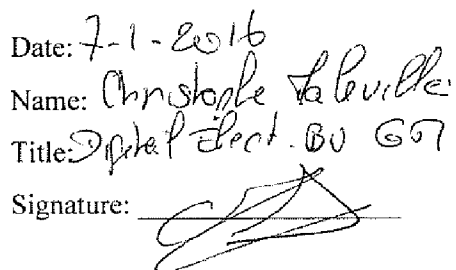 Date: 7-1-2016
Name: Christophe
Title: Digital Elect. BU GM
Signature: